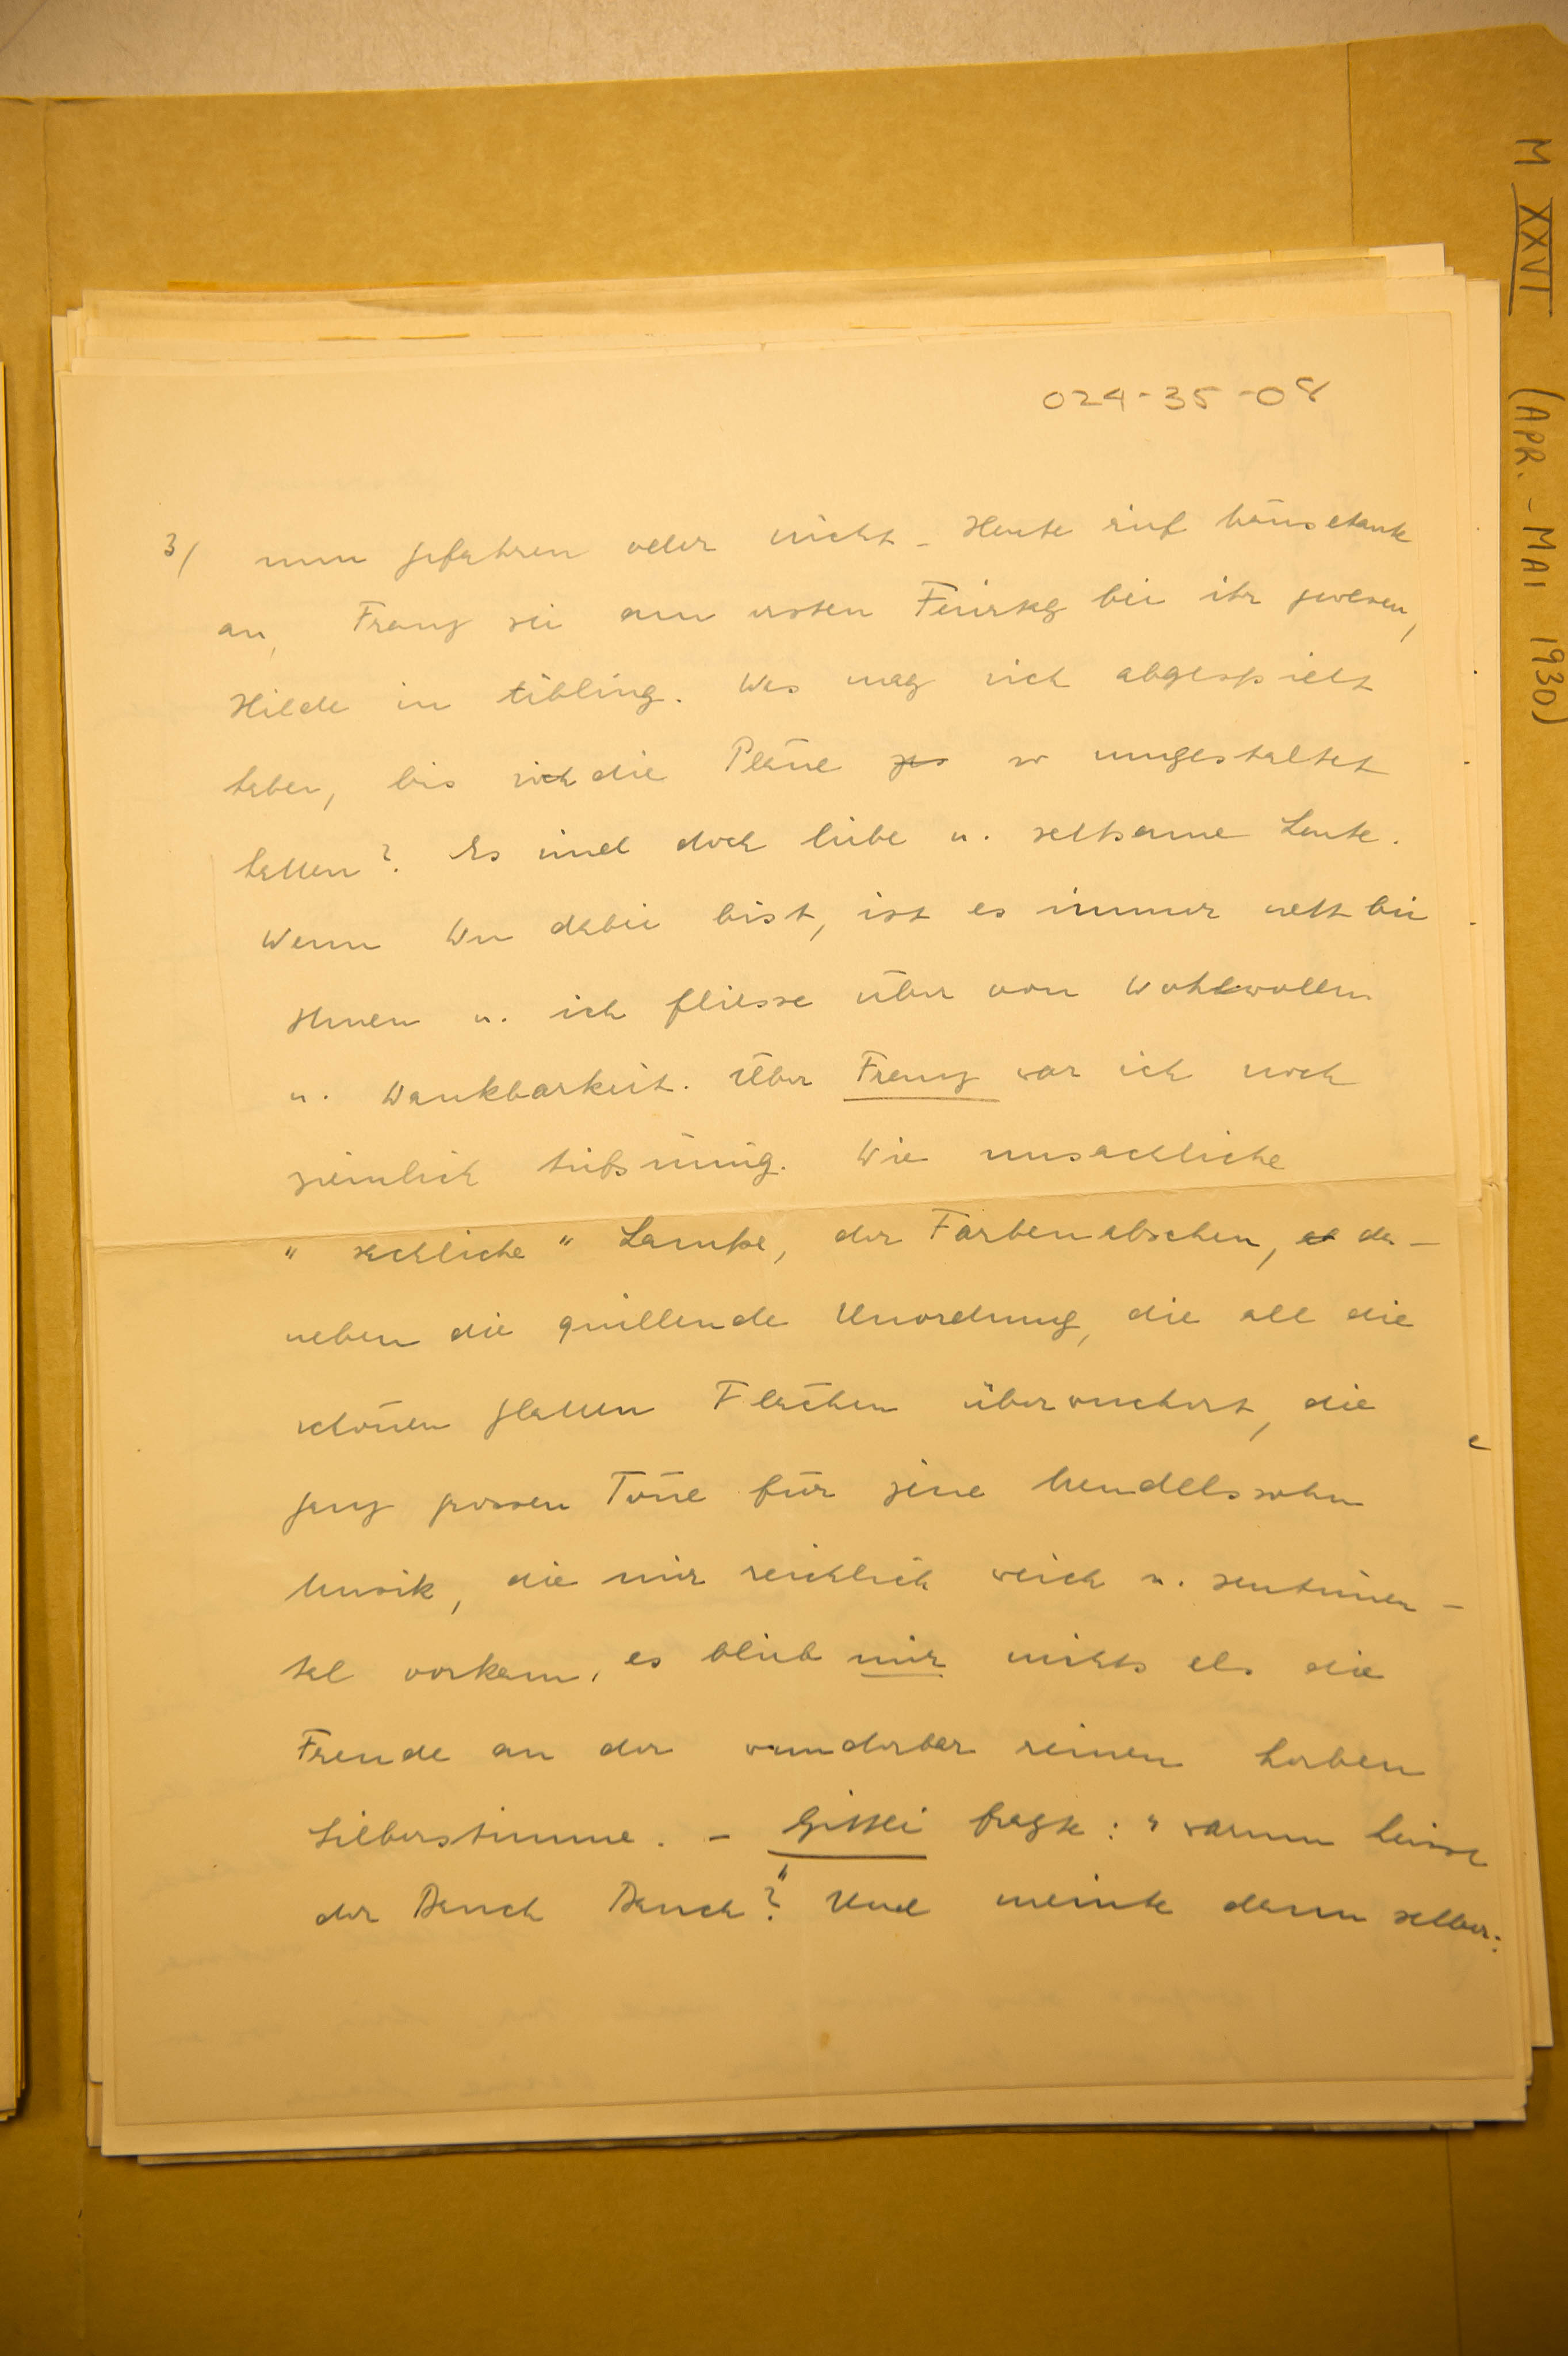 024-35-08
3/ nun gefahren oder nicht – Heute rief Mäusetante
an, Franz sei am ersten Feiertag bei ihr gewesen,
Hilde in Aibling. Was mag sich abgespielt
haben, bis sich die Pläne so umgestaltet
hatten? Es sind doch liebe u. seltsame Leute.
Wenn Du dabei bist, ist es immer nett bei
Ihnen u. ich fliesse über von Wohlwollen
u. Dankbarkeit. Über Franz war ich noch
ziemlich tiefsinnig. Die unsachliche
"sachliche" Lampe, der Farbenabscheu, da-
neben die quellende Unordnung, die all die
schönen glatten Flächen überwuchert, die
ganz grossen Töne für jene Mendelssohn
Musik, die mir reichlich weich u. sentimen-
tal vorkam, es blieb mir nichts als die
Freude an der wunderbar reinen herben
Silberstimme. – Gittei fragte: "warum heisst
der Bauch Bauch?" Und meinte dann selber:
M XXVI (APR. - MAI 1930)